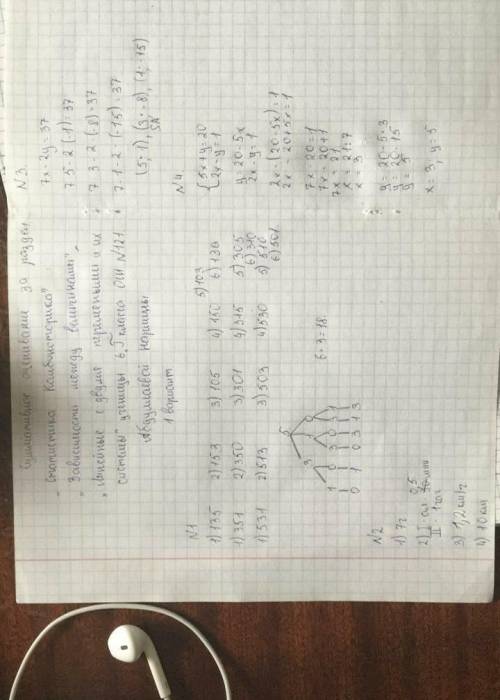 Суммативное оценивание за раздел
"Статистика Комбинаторика"
"Зависимости между величинами",
"Линейные с двумя переменными и их
системы" ученицы 6 "Г" класса ОСШ №121
1 вариант
№1
1) 135 2) 153 3) 105 4) 150 5) 103 6) 130
1) 351 2) 350 3) 301 4) 315 5) 305 6) 310
1) 531 2) 513 3) 503 4) 530 5) 510 6) 501
5
3 1 0
1 0 3 0 1 3
0 1 0 3 3 1
6 · 3 = 18.
№2
1) 7г
2) I - 0,5
II - 1 час
3) 1,2 км/г
4) 10 км
№3
7x - 2y = 37
7 · 5 - 2 · (-1) = 37
7 · 3 - 2 · (-8) = 37
7 · 1 - 2 · (-15) = 37
(5; -1), (3; -8), (1; -15)
№4.
{5x + y = 20
2x - y = 1
y = 20 - 5x
2x - y = 1
2x - (20 - 5x) = 1
2x - 20 + 5x = 1
7x - 20 = 1
7x = 20 + 1
7x = 21
x = 21 : 7
x = 3
y = 20 - 5 · 3
y = 20 - 15
y = 5
x = 3, y = 5